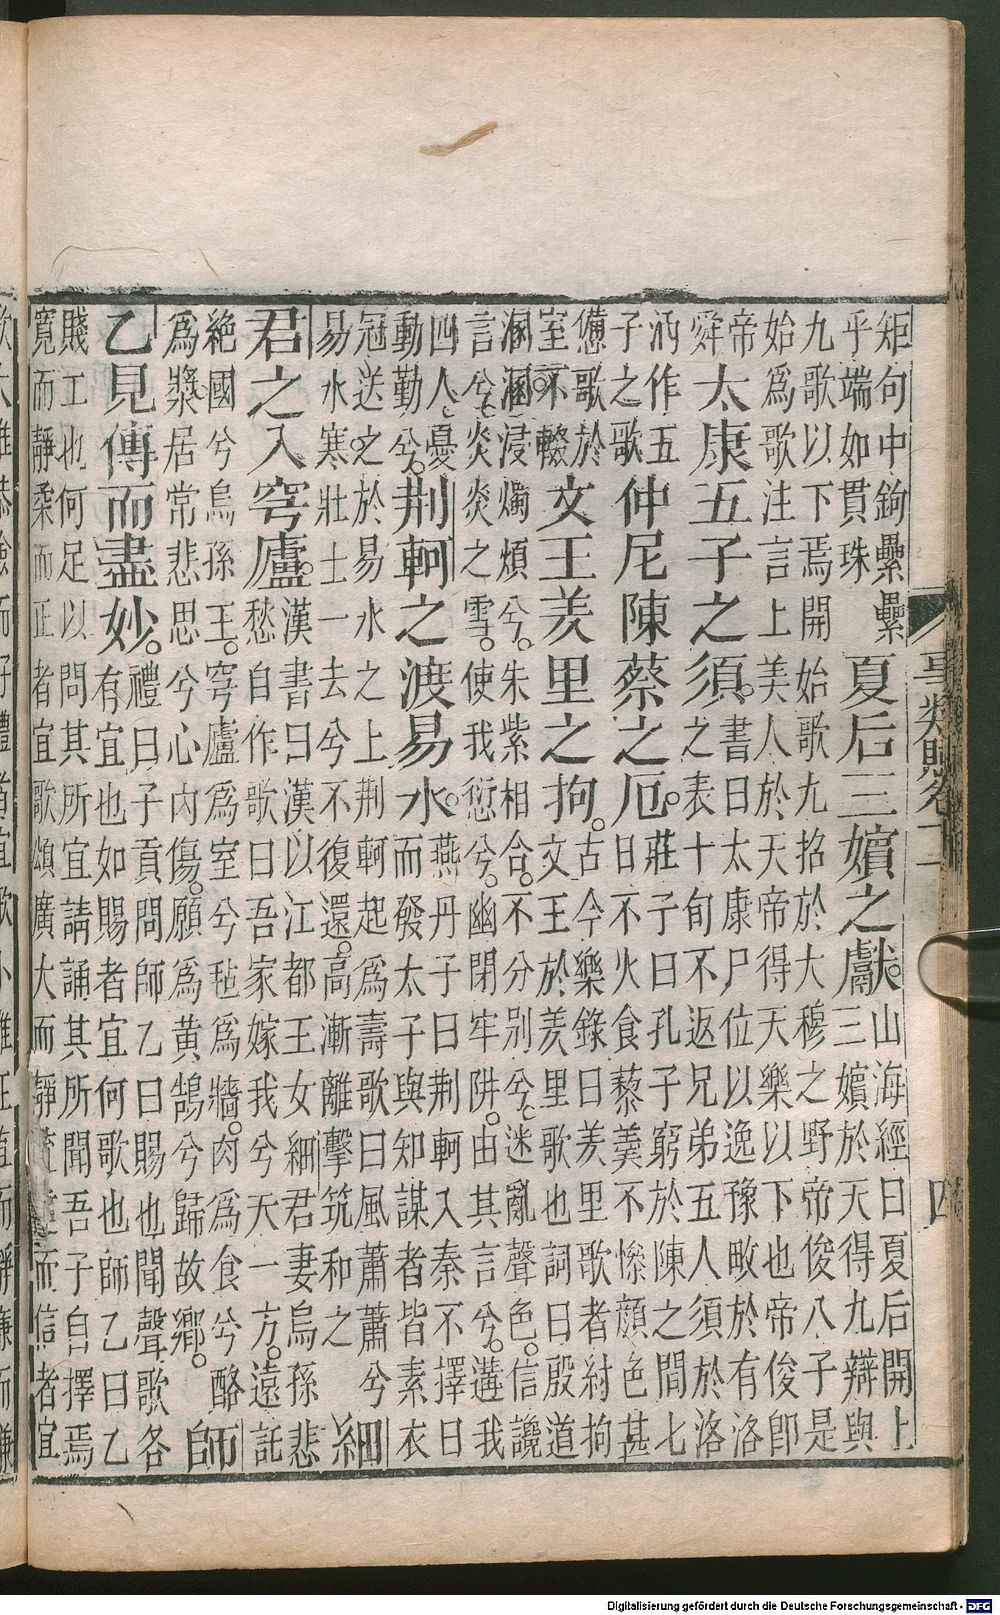 矩句中鉤纍纍
乎端如貫珠
夏后三嬪之獻
山海經曰夏后開上
三嬪於天得九辯與
九歌以下焉開始歌九招於大穆之野帝俊八子是
始為歌注言上美人於天帝得天樂以下也帝俊即
帝
舜
太康五子之須
書曰太康尸位以逸豫畋於有洛
之表十旬不返兄弟五人須於洛
汭作五
子之歌
仲尼陳蔡之厄
莊子曰孔子窮於陳之間七
日不火食藜羹不慘顏色甚
憊歌於
室不輟
文王羑里之拘
古今樂錄曰羑里歌者紂拘
文王於羑里歌也詞曰殷道
溷溷浸燭煩兮朱紫相合不分別兮迷亂聲色信讒
言兮炎炎之雪使我愆兮幽閉牢阱由其言兮遘我
四人憂
動勤兮
荆軻之渡易水
燕丹子曰荆軻入秦不擇日
而發太子與知謀者皆素衣
冠送之於易水之上荆軻起為壽歌曰風蕭蕭兮
易水寒壯士一去兮不復還高漸離擊筑和之
細
君之入穹廬
漢書曰漢以江都王女細君妻烏孫悲
愁自作歌曰吾家嫁我兮天一方遠託
絕國兮烏孫王穹廬為室兮氊為牆肉為食兮酪
為漿居常悲思兮心內傷願為黃鵠兮歸故鄉
師
乙見傅而盡妙
禮曰子貢問師乙曰賜也聞聲歌各
有宜也如賜者宜何歌也師乙曰乙
賤工也何足以問其所宜請誦其所聞吾子自擇焉
寬而靜柔而正者宜歌頌廣大而靜疏達而信者宜
事類賦卷十一
四
Digitalisierung gefördert durch die Deutsche Forschungsgemeinschaft - DFG